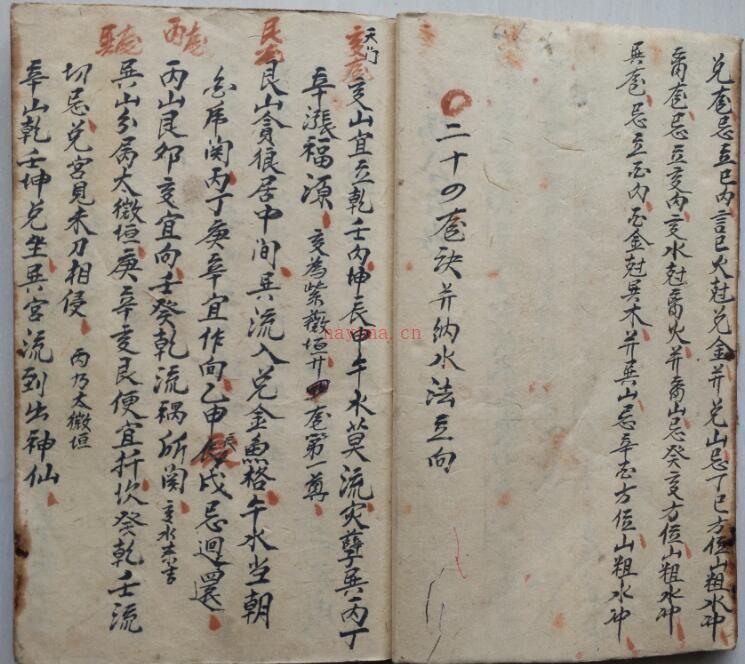 兑龙忌立巳丙言巳火尅兑金并兑山忌丁巳方位山粗水冲
离龙忌立亥内亥水尅离火并离山忌癸亥方位山粗水冲
巽龙忌立酉内酉金尅巽木并巽山忌辛方位山粗水冲
二十四龙诀并纳水法立向
天门
亥龙
亥山宜立乾壬丙坤辰申午水莫流灾孽巽丙丁
辛漲福源
亥為紫薇垣廿四龙第一尊
艮龙
艮山貪狼居中间巽流入兑金魚格午水当朝
丙丁庚辛宜作向乙申辰戌忌迴還
丙龙
丙山艮卯亥宜向壬癸乾流禍所関
亥水亦吉
巽龙
巽山分属太微垣庚辛亥艮便宜扦坎癸乾壬流
切忌兑宮見未刀相侵
丙乃太微垣
辛山乾壬坤兑坐巽宮流到出神仙
nayona.cn